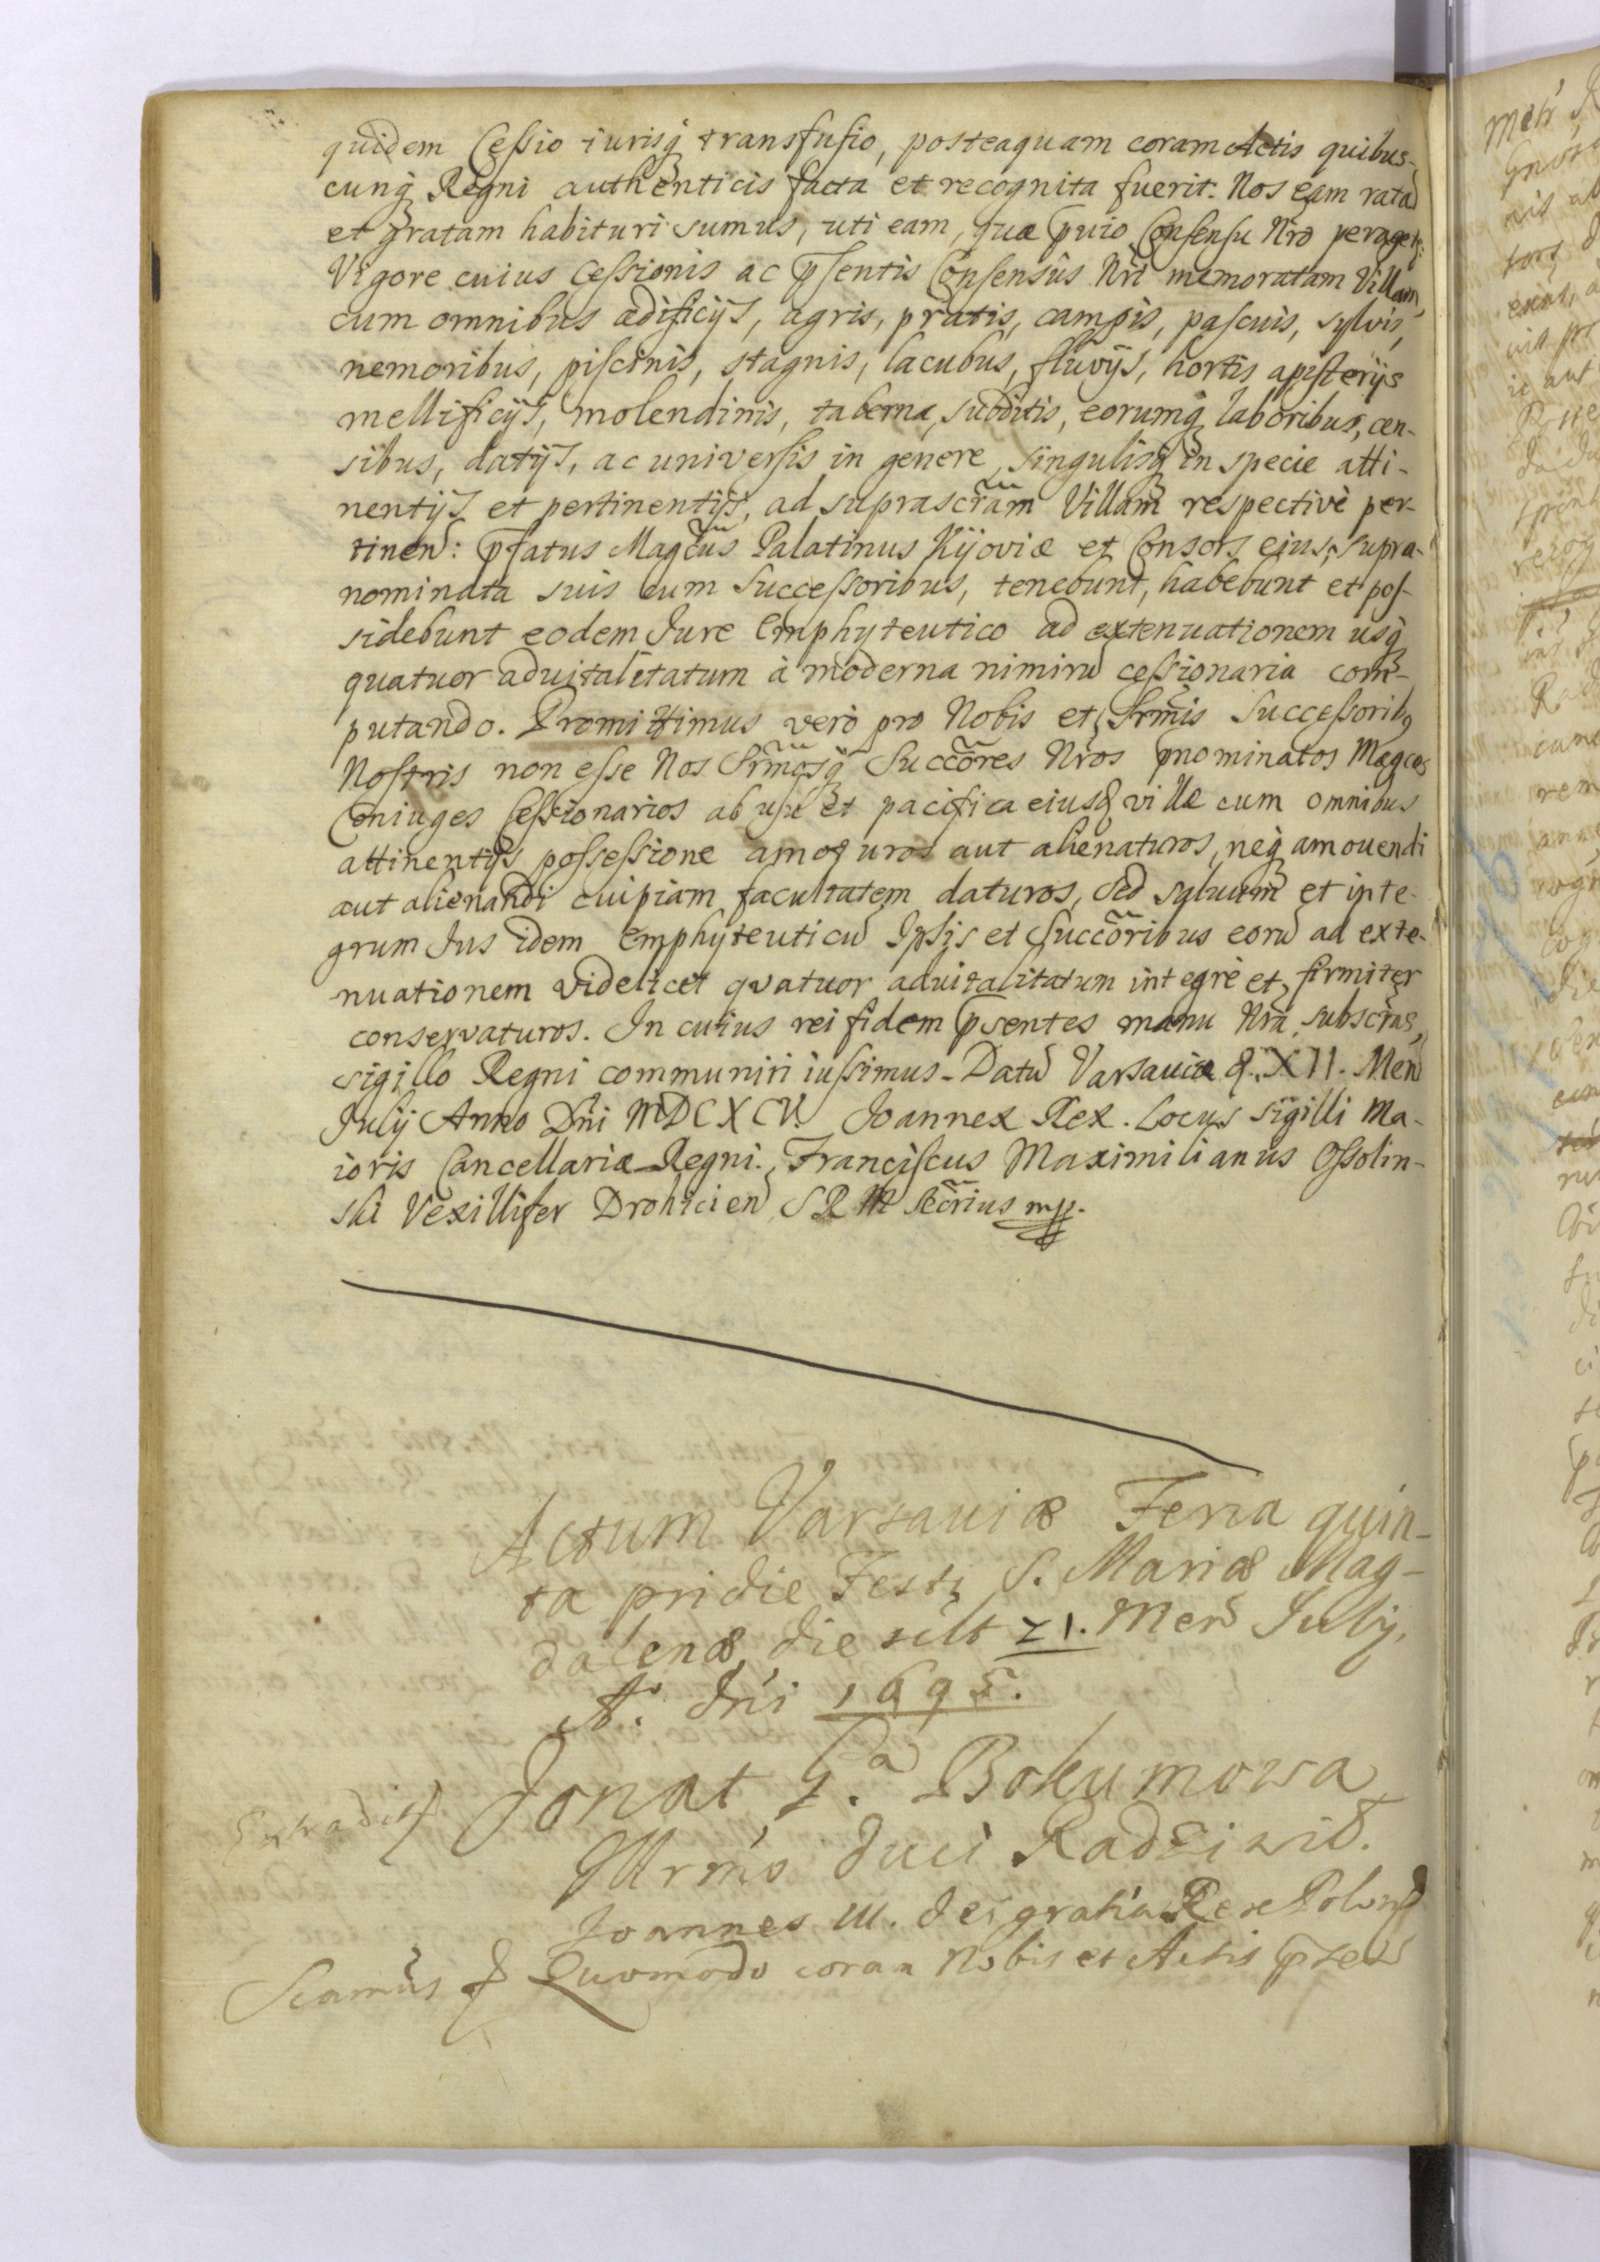 quidem Cessio iurisq transfusio, posteaquam coram Actis quibus-
cunq Regni authenticis facta et recognita fuerit. Nos eam ratam
et gratam habituri sumus, uti eam, quæ pvio Consensu Nro peraget:
Vigore cuius Cessionis ac psentis Consensûs Nri memoratam Villam,
cum omnibus ædificijs, agris, pratis, campis, pascuis, sylvis,
nemoribus, piscinis, stagnis, lacubus, fluvijs, hortis apisterijs
mellificijs, molendinis, taberna, subditis, eorumq laboribus, cen-
sibus, datijs, ac universis in genere, singulisq in specie atti-
nentijs et pertinentijs, ad suprascram Villam respectivè per-
tinen: pfatus Magcus Palatinus Kijoviæ et Consors eius, supra-
nominata suis cum Successoribus, tenebunt, habebunt et pos-
sidebunt eodem Jure Emphyteutico ad extenuationem usq
quatuor advitalitatum à moderna nimiru cessionaria com-
putando. Promittimus verò pro Nobis et Srmis Successorib9
Nostris non esse Nos Srmosq Succores Nros pnominatos Magcos
Coniuges Cessionarios ab usu et pacifica eiusd villæ cum omnibus
attinentijs possessione amoturos aut alienaturos, neq amovendi
aut alienandi cuipiam facultatem daturos, sed salvum et inte-
grum Jus idem Emphyteuticu Ipsis et Succoribus eoru ad exte-
nuationem videlicet qvatuor advitalitatum integrè et firmiter
conservaturos. In cuius rei fidem psentes manu Nra subscras,
sigillo Regni communiri iussimus. Datu Varsaviæ d. XII. Men
Julij Anno Dni MDCXCV. Joannes Rex. Locus Sigilli Ma-
ioris Cancellariæ Regni. Franciscus Maximilianus Ossolin-
ski Vexillifer Drohicien S R M Secrius mp.
Actum Varsaviæ Feria quin-
ta pridie Festi S. Mariæ Mag-
dalenæ die scilt 21. Men Julij.
Ao. Dni 1695.
Extradit Donat Ga. Bokumowa
Illrmo Duci Radziwil.
Joannes III. Dei gratia Rex Polon
Scamus &amp; Quomodo coram Nobis et Actis psen